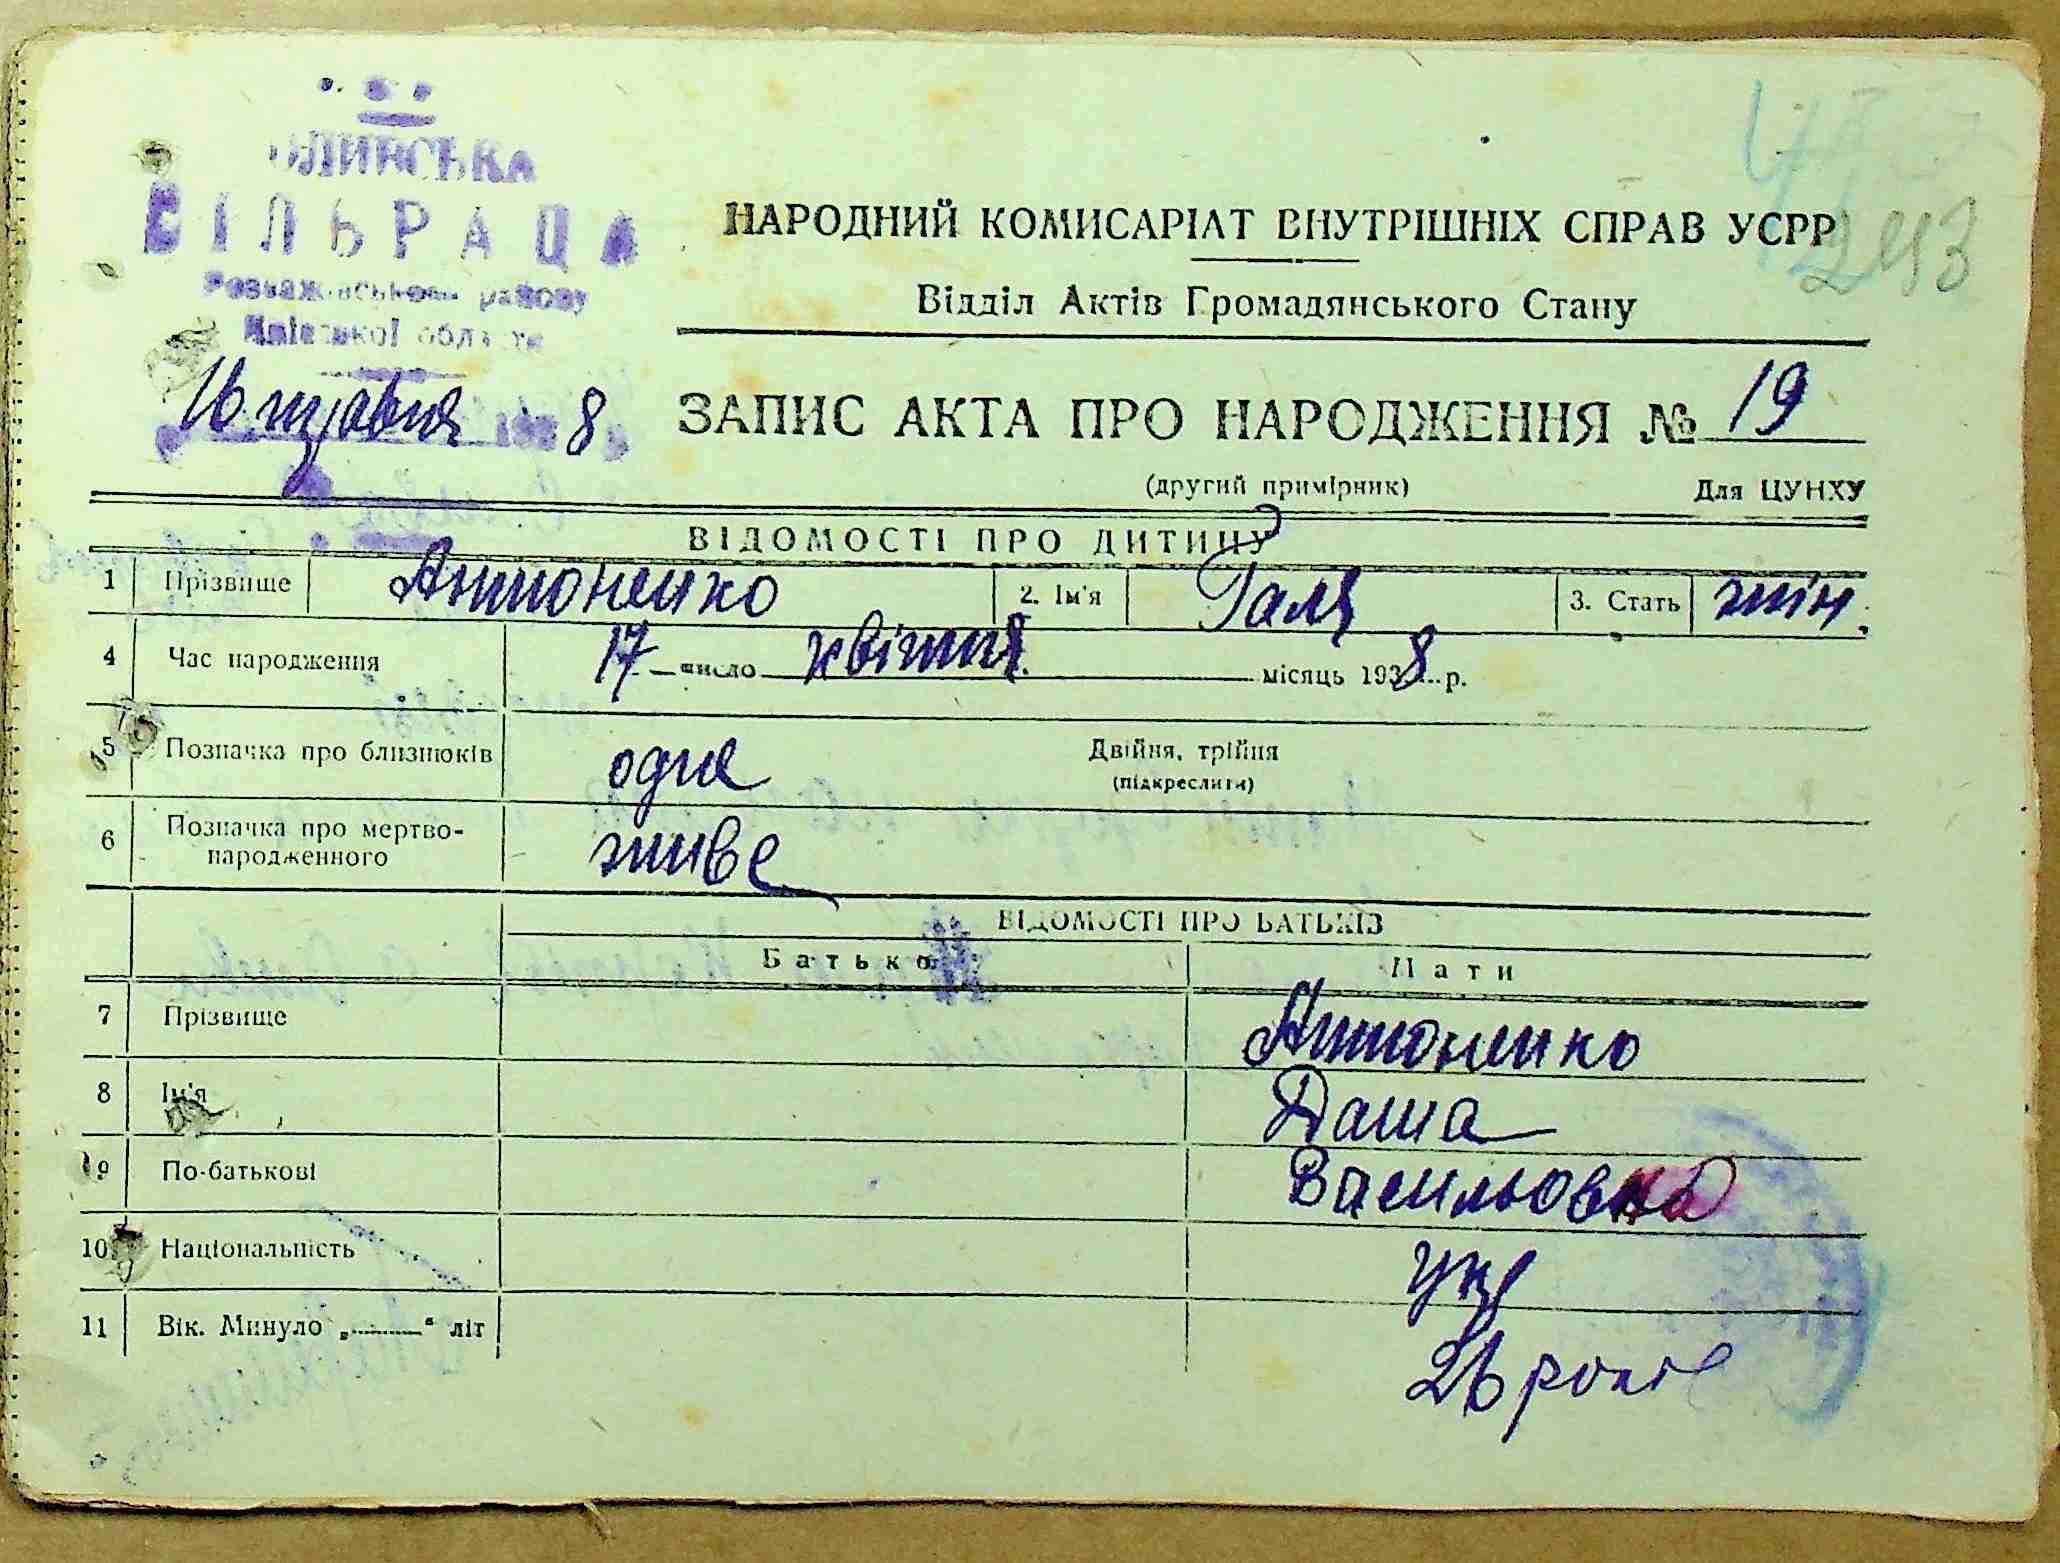 СІЛЬРАДА
Розважівського району
Київської області
16 травня 1938
243
НАРОДНИЙ КОМИСАРІАТ ВНУТРІШНІХ СПРАВ УСРР
Відділ Актів Громадянського Стану
ЗАПИС АКТА ПРО НАРОДЖЕННЯ № 19
(другий примірник) Для ЦУНХУ
ВІДОМОСТІ ПРО ДИТИНУ
1 Прізвище Антоненко 2. Ім'я Галя 3. Стать жін.
4 Час народження 17 число квітня місяць 1938 р.
5 Позначка про близнюків одне Двійня, трійня
(підкреслити)
6 Позначка про мертво-
народженного живе
ВІДОМОСТІ ПРО БАТЬКІВ
Батько Мати
7 Прізвище Антоненко
8 Ім'я Даша
9 По-батькові Васильовна
10 Національність укр
11 Вік. Минуло „........“ літ 26 років